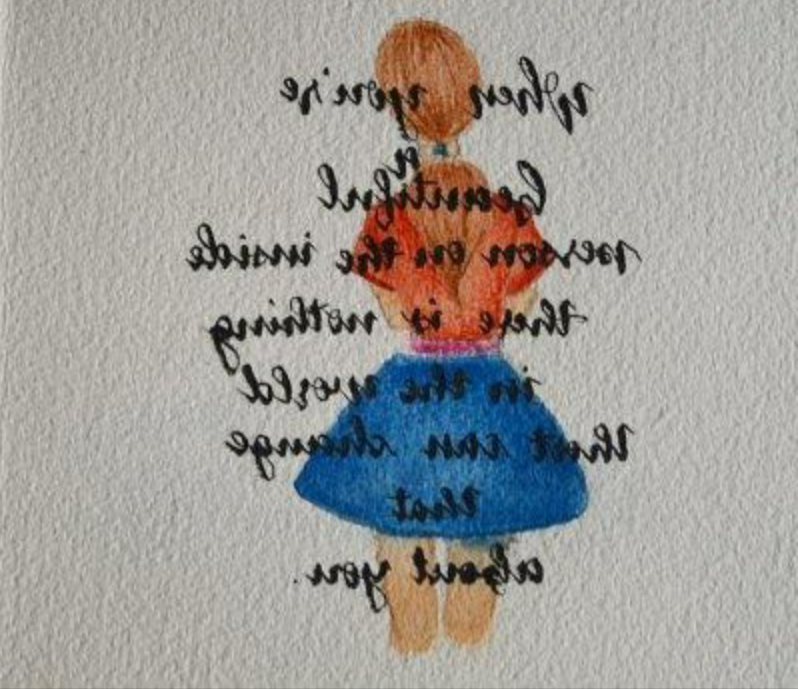 when you're
a
beautiful
person on the inside
there is nothing
in the world
that can change
that
about you.